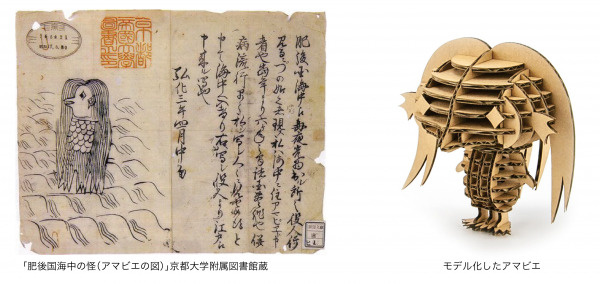 京都
帝國大學
圖書之印
肥後国海中え毎夜光物出ル所の役人行
見るニづの如く者現ス私ハ海中ニ住アマビヱト申
者也当年より六ヶ年之間諸国豊作也併
病流行早々私ヲ写シ人々ニ見セ候得と
申て海中へ入けり右写シ役人より江戸え
申来ル写也
弘化三年四月中旬
「肥後国海中の怪(アマビエの図)」京都大学附属図書館蔵
モデル化したアマビエ